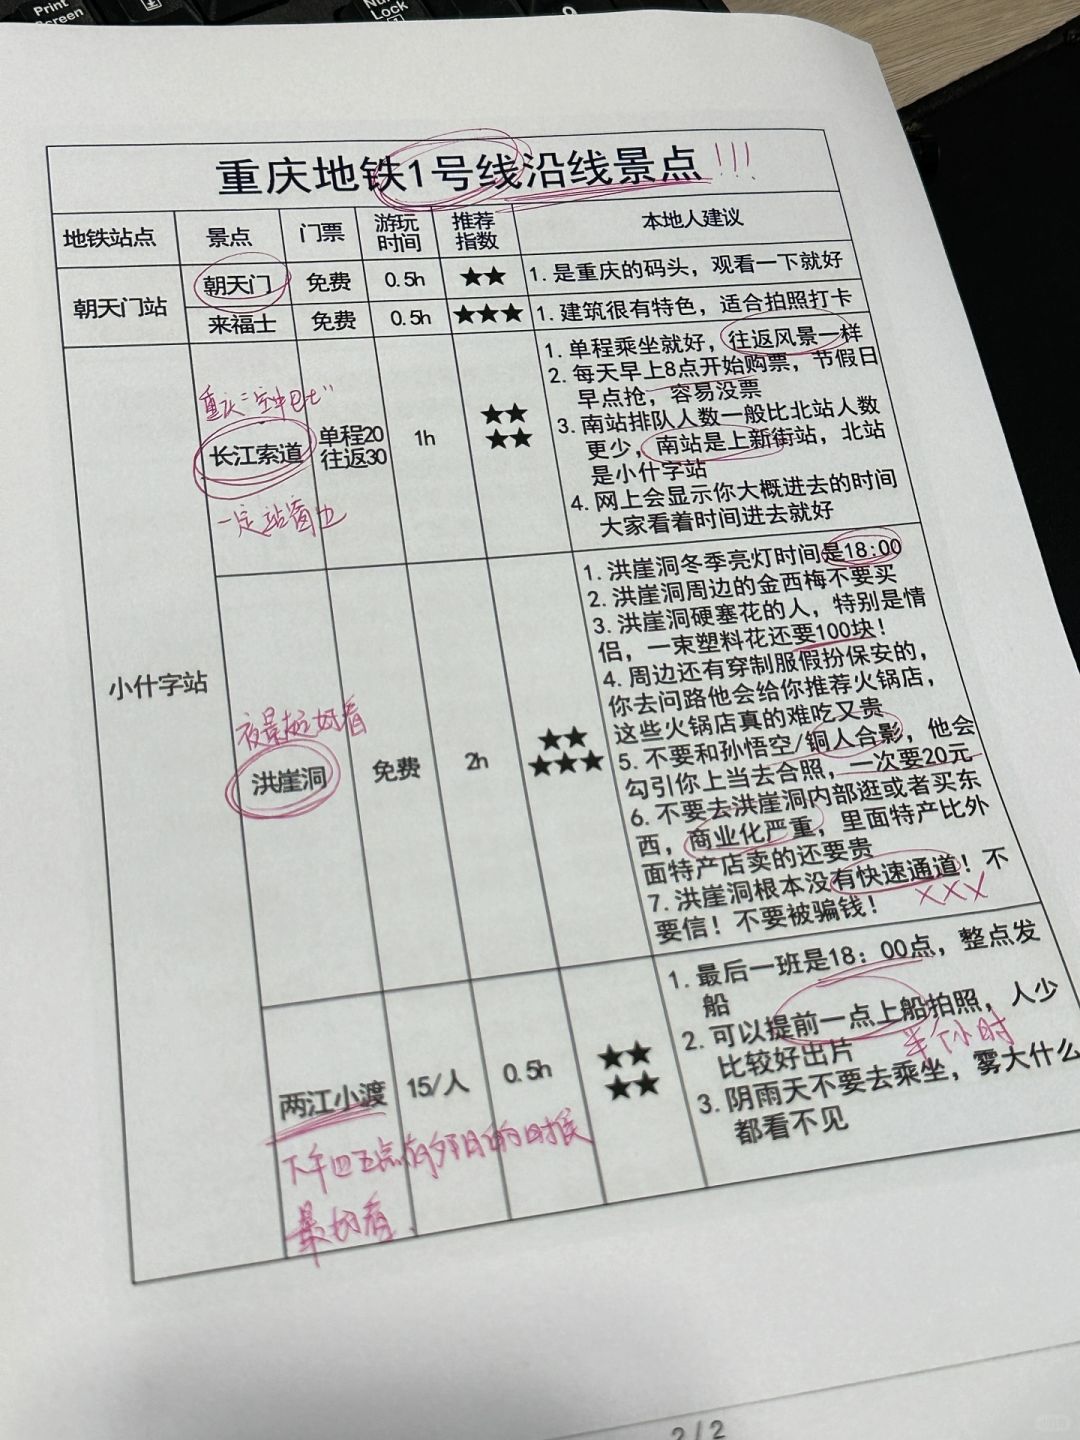 Print
Screen
Num
Lock
9
重庆地铁1号线沿线景点!!!
地铁站点
景点
门票
游玩
时间
推荐
指数
本地人建议
朝天门站
朝天门
免费
0.5h
★★
1. 是重庆的码头，观看一下就好
来福士
免费
0.5h
★★★
1. 建筑很有特色，适合拍照打卡
小什字站
重庆"空中巴士"
长江索道
一定站窗边
单程20
往返30
1h
★★
★★
1. 单程乘坐就好，往返风景一样
2. 每天早上8点开始购票，节假日
早点抢，容易没票
3. 南站排队人数一般比北站人数
更少，南站是上新街站，北站
是小什字站
4. 网上会显示你大概进去的时间
大家看着时间进去就好
夜景超好看
洪崖洞
免费
2h
★★
★★★
1. 洪崖洞冬季亮灯时间是18:00
2. 洪崖洞周边的金西梅不要买
3. 洪崖洞硬塞花的人，特别是情
侣，一束塑料花还要100块！
4. 周边还有穿制服假扮保安的，
你去问路他会给你推荐火锅店，
这些火锅店真的难吃又贵
5. 不要和孙悟空/铜人合影，他会
勾引你上当去合照，一次要20元
6. 不要去洪崖洞内部逛或者买东
西，商业化严重，里面特产比外
面特产店卖的还要贵
7. 洪崖洞根本没有快速通道！不
要信！不要被骗钱！
×××
两江小渡
15/人
0.5h
★★
★★
1. 最后一班是18：00点，整点发
船
2. 可以提前一点上船拍照，人少
比较好出片
半个小时
3. 阴雨天不要去乘坐，雾大什么
都看不见
下午四五点有夕阳的时候
最好看.
2/2